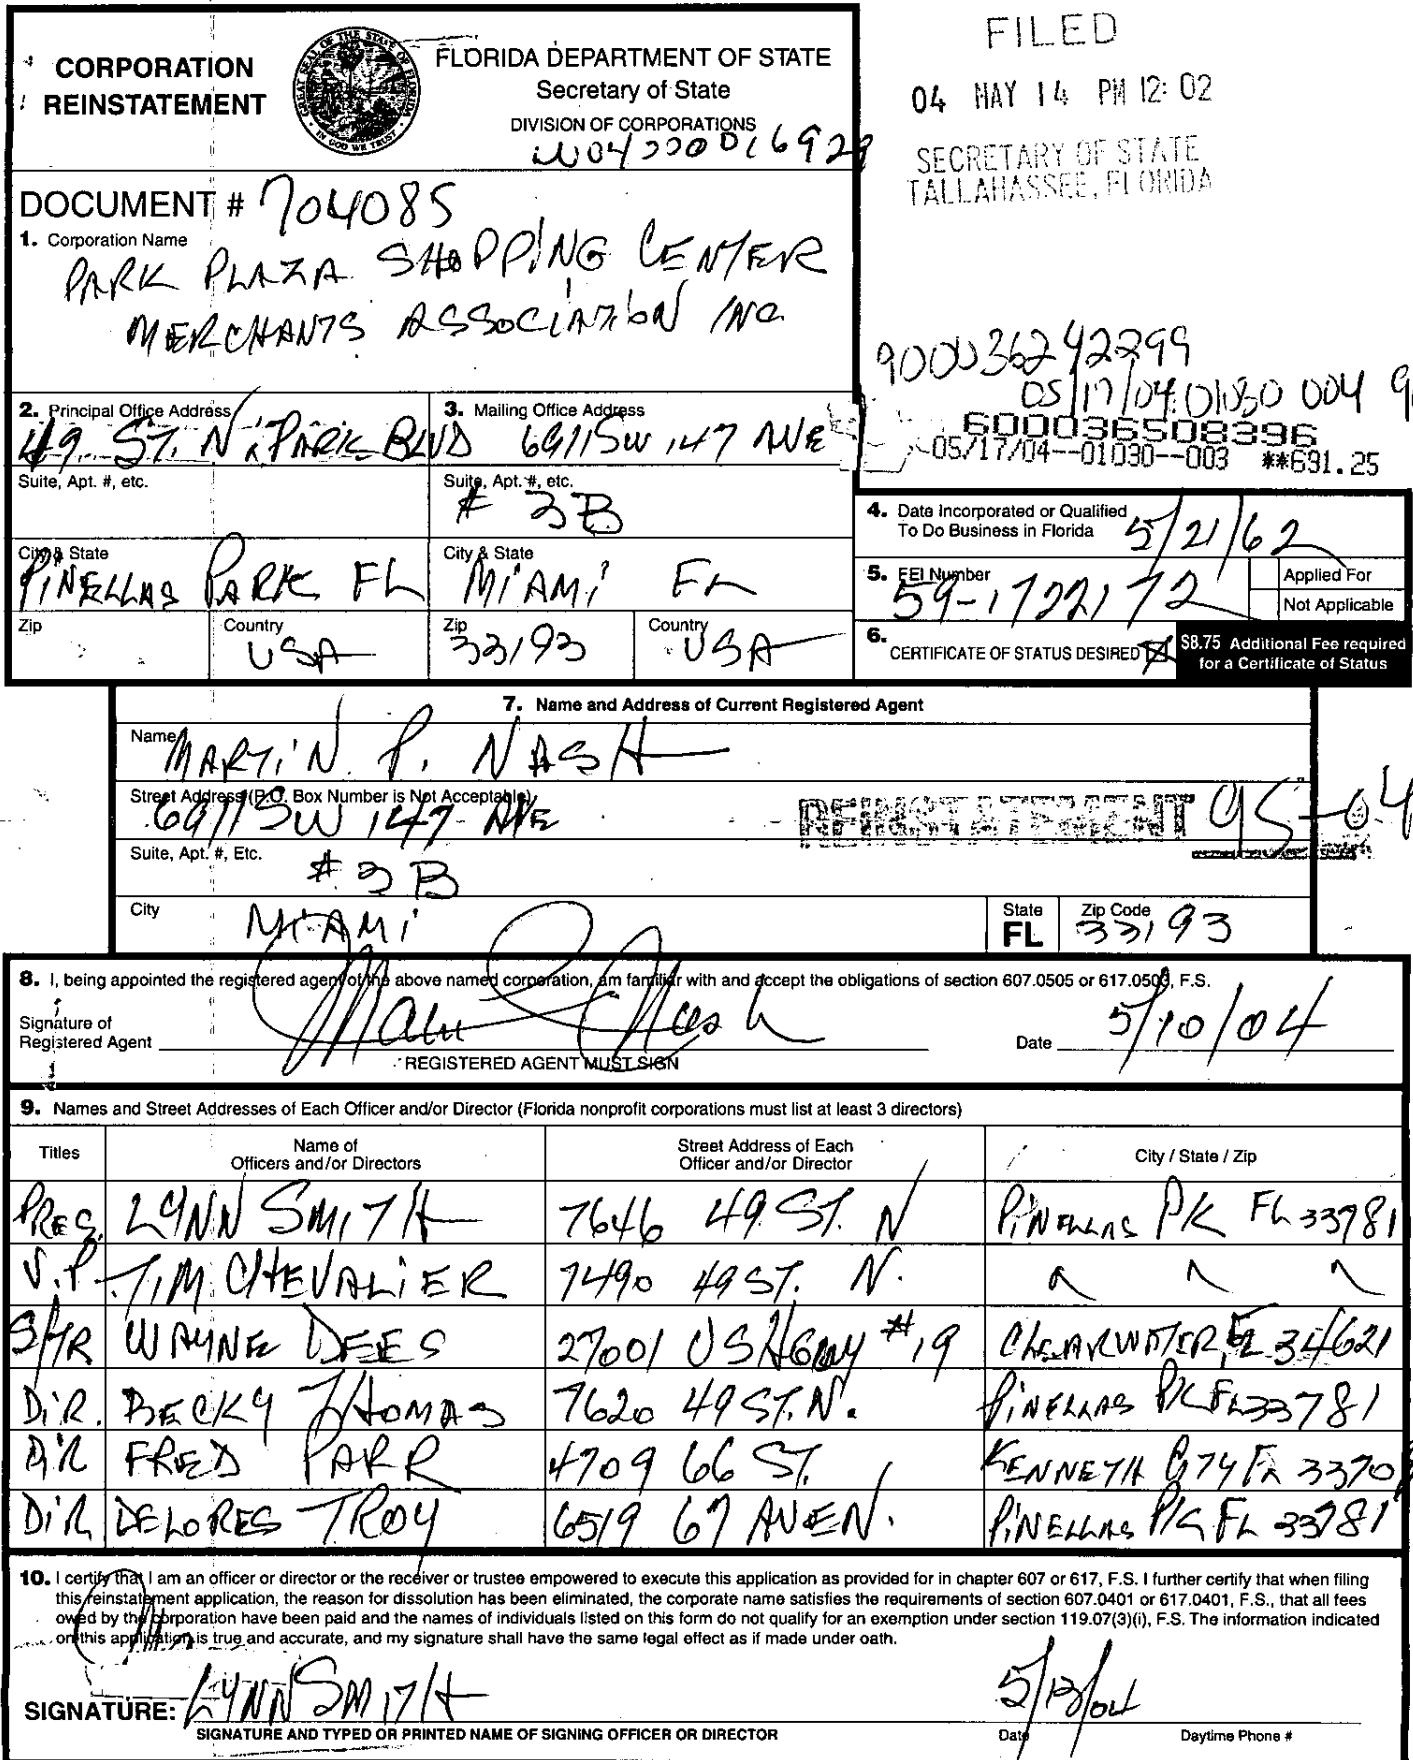 CORPORATION
REINSTATEMENT
FLORIDA DEPARTMENT OF STATE
Secretary of State
DIVISION OF CORPORATIONS
W04000016929
FILED
04 MAY 14 PM 12:02
SECRETARY OF STATE
TALLAHASSEE, FLORIDA
DOCUMENT # 704085
1. Corporation Name
PARK PLAZA SHOPPING CENTER
MERCHANTS ASSOCIATION INC
900036242299
05/17/04 01030 004
600036508396
05/17/04--01030--003 **691.25
2. Principal Office Address
49 ST. N. PARK BLVD
Suite, Apt. #, etc.
City & State
PINELLAS PARK FL
Zip
Country
USA
3. Mailing Office Address
6911 SW 147 AVE
Suite, Apt. #, etc.
# 3B
City & State
MIAMI FL
Zip
33193
Country
USA
4. Date Incorporated or Qualified
To Do Business in Florida 5/21/62
5. FEI Number
59-1722172
Applied For
Not Applicable
6. CERTIFICATE OF STATUS DESIRED
$8.75 Additional Fee required
for a Certificate of Status
7. Name and Address of Current Registered Agent
Name
MARTIN P. NASH
Street Address (P.O. Box Number is Not Acceptable)
6911 SW 147 AVE
REINSTATEMENT 95-04
Suite, Apt. #, Etc.
# 3B
City
MIAMI
State
FL
Zip Code
33193
8. I, being appointed the registered agent of the above named corporation, am familiar with and accept the obligations of section 607.0505 or 617.0503, F.S.
Signature of
Registered Agent
Date 5/10/04
REGISTERED AGENT MUST SIGN
9. Names and Street Addresses of Each Officer and/or Director (Florida nonprofit corporations must list at least 3 directors)
Titles
Name of
Officers and/or Directors
Street Address of Each
Officer and/or Director
City / State / Zip
PRES. LYNN SMITH 7646 49 ST. N PINELLAS PK FL 33781
V.P. TIM CHEVALIER 7490 49 ST. N. " " "
S/TR WAYNE DEES 27001 US HGWY #19 CLEARWATER, FL 34621
DIR. BECKY THOMAS 7620 49 ST. N. PINELLAS PK FL 33781
DIR FRED PARR 4709 66 ST. KENNETH CITY FL 3370
DIR DELORES TROY 6519 67 AVE N. PINELLAS PK FL 33781
10. I certify that I am an officer or director or the receiver or trustee empowered to execute this application as provided for in chapter 607 or 617, F.S. I further certify that when filing
this reinstatement application, the reason for dissolution has been eliminated, the corporate name satisfies the requirements of section 607.0401 or 617.0401, F.S., that all fees
owed by the corporation have been paid and the names of individuals listed on this form do not qualify for an exemption under section 119.07(3)(i), F.S. The information indicated
on this application is true and accurate, and my signature shall have the same legal effect as if made under oath.
SIGNATURE: LYNN SMITH 5/13/04
SIGNATURE AND TYPED OR PRINTED NAME OF SIGNING OFFICER OR DIRECTOR
Date
Daytime Phone #